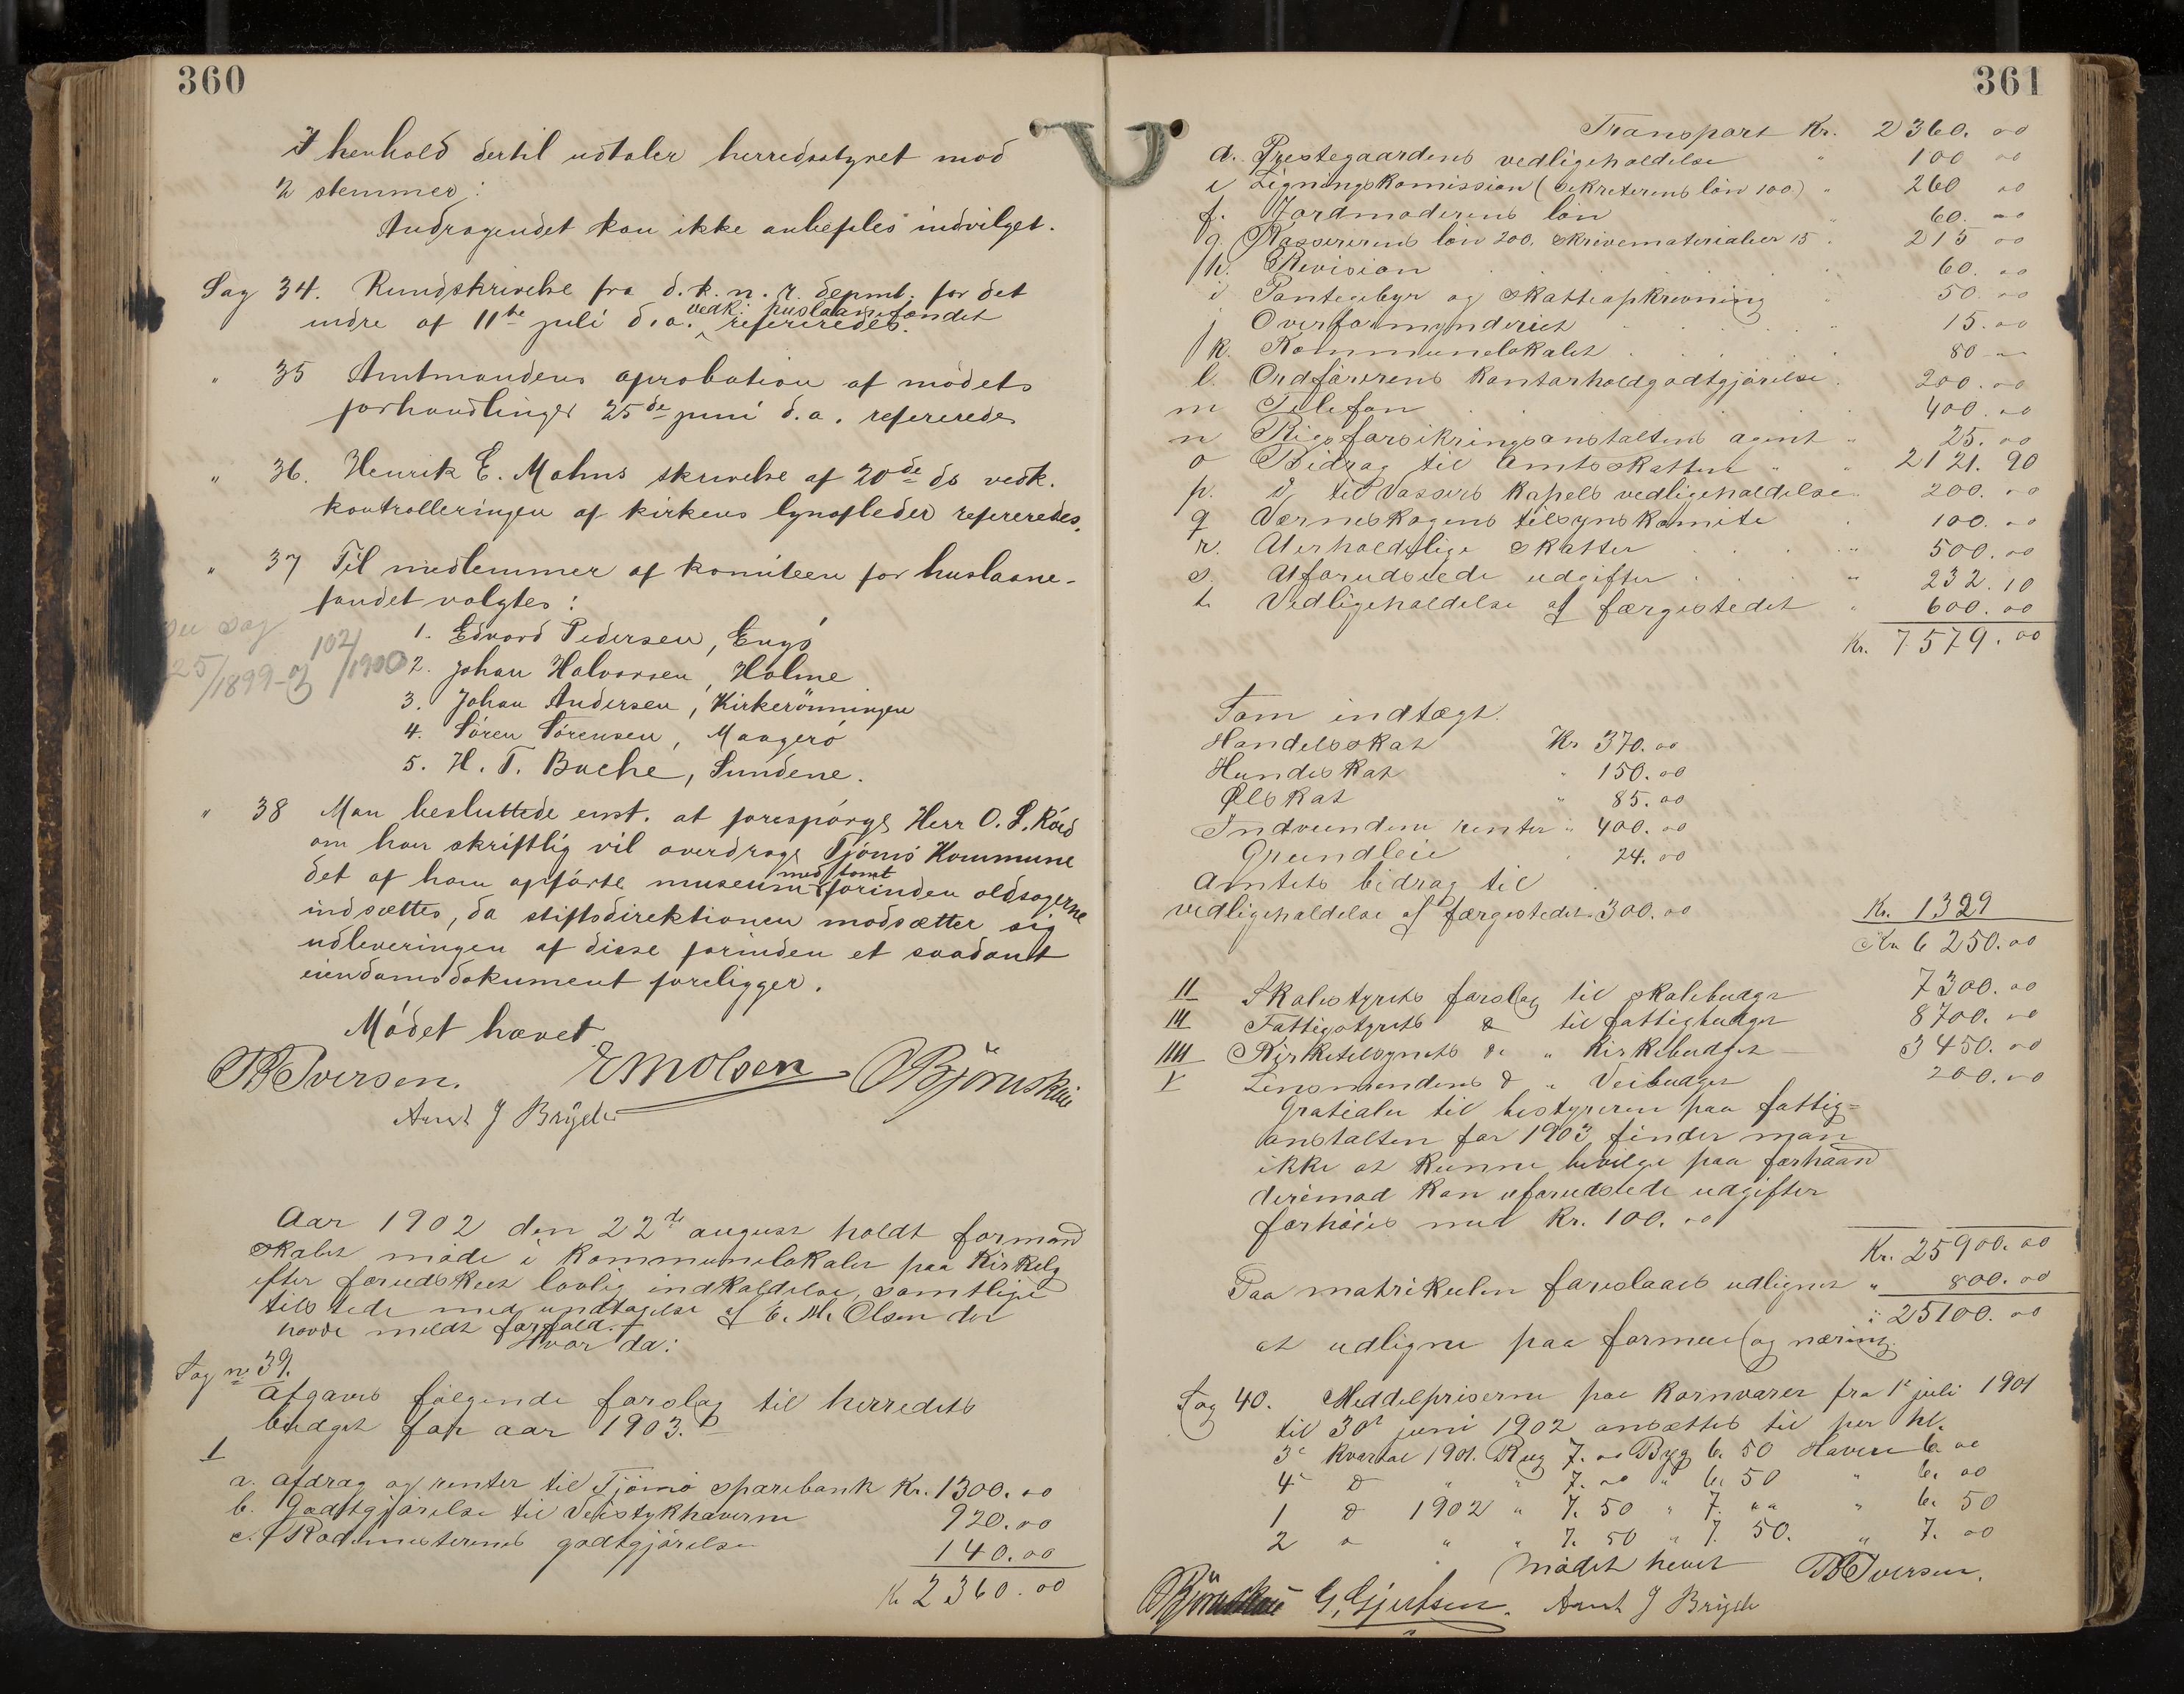 360
I henhold dertil udtaler herredsstyret mod
2 stemmer:
Andragendet kan ikke anbefales indvilget.
Sag 34. Rundskrivelse fra d. k. n. r. depmt. for det
indre af 11te juli d.a. vedk. huslaanefondet refereredes.
" 35 Amtmandens aprobation af mödets
forhandlinger 25de juni d.a. refereredes
" 36. Henrik E. Mohns skrivelse af 20de ds vedk.
kontrolleringen af kirkens lynafleder refereredes.
" 37 Til medlemmer af komiteen for huslaane-
fondet valgtes:
Se sag
25/1899 og 102/1900
1. Edvard Pedersen, Engö
2. Johan Halvorsen, Holme
3. Johan Andersen, Kirkerönningen
4. Sören Sörensen, Maagerö
5. H. T. Bache, Sundene.
" 38 Man besluttede enst. at forespörge Herr O. L. Röed
om han skriftlig vil overdrage Tjömö Kommune
det af ham opförte museum med tomt forinden oldsagerne
indsættes, da stiftsdirektionen modsætter sig
udleveringen af disse forinden et saadant
eiendomsdokument foreligger.
Mödet hævet.
Iversen. E M Olsen O Björnskau
Arnt J Bryde
Aar 1902 den 22de august holdt formand
skabet möde i Kommunelokalet paa Kirkelg
efter forudskeet lovlig indkaldelse, samtlige
tilstede med undtagelse af E. M. Olsen der
havde meldt forfald.
Hvor da:
Sag no 39.
Afgaves fölgende forslag til herredets
budget for aar 1903.
I
a. afdrag og renter til Tjömö sparebank Kr. 1300.00
b. Godtgjörelse til Veistykhaverne 920.00
c. Rodemesterenes godtgjörelse 140.00
Kr 2360.00
361
Transport Kr. 2360.00
d. Prestegaardens vedligeholdelse " 100 00
e Ligningskomission (sekreterens lön 100.) " 260 00
f. Jordmoderens lön 60. 00
g. Kassererens lön 200. skrivematerialier 15. 215 00
h. Revision 60. 00
i Pantegebyr og skatteopkrævning 50. 00
j Overformynderiet 15. 00
k. Kommunelokalet 80 00
l. Ordförerens Kontorholdgodtgjörelse. 200. 00
m Telefon 400. 00
n Rigsforsikringsanstaltens agent " 25. 00
o Bidrag til Amtsskatten " " 2121. 90
p. d. til Vassers Kapels vedligeholdelse. 200. 00
q Værneskogens tilsynskomite 100. 00
r. Uerholdelige skatter 500. 00
s. Uforudseede udgifter " 232. 10
t. Vedligeholdelse af færgestedet " 600. 00
Kr. 7579. 00
Som indtægt.
Handelsskat Kr 370. 00
Hundeskat " 150. 00
Ølskat " 85. 00
Indvundne renter " 400. 00
Grundleie 24. 00
Amtets bidrag til
vedligeholdelse af færgestedet 300. 00 Kr. 1329
Kr 6250. 00
II Skolestyrets forslag til skolebudget 7300. 00
III Fattigstyrets d til fattigbudget 8700. 00
IIII Kirketilsynets d. " Kirkebudget 3450. 00
V Lensmandens d " Veibudget 200. 00
Gratiale til bestyreren paa fattig=
anstalten for 1903 finder man
ikke at kunne bevilge paa forhaand
derimod kan uforudseede udgifter
forhöies med Kr. 100. 00
Kr. 25900. 00
Paa matrikulen foreslaaes udlignet " 800. 00
" 25100. 00
at udligne paa formue og næring.
Sag 40. Meddelpriserne paa kornvarer fra 1e juli 1901
til 30e juni 1902 ansættes til per hl.
3e Kvartal 1901. Rug 7. 00 Byg 6. 50 Havre 6. 00
4e d " " 7. 00 " 6. 50 " 6. 00
1 d 1902 " 7. 50 " 7. 00 " 6. 50
2 d " " 7. 50 " 7. 50. " 7. 00
Mödet hevet Iversen.
Björnskau G. Gjertsen. Arnt J Bryde